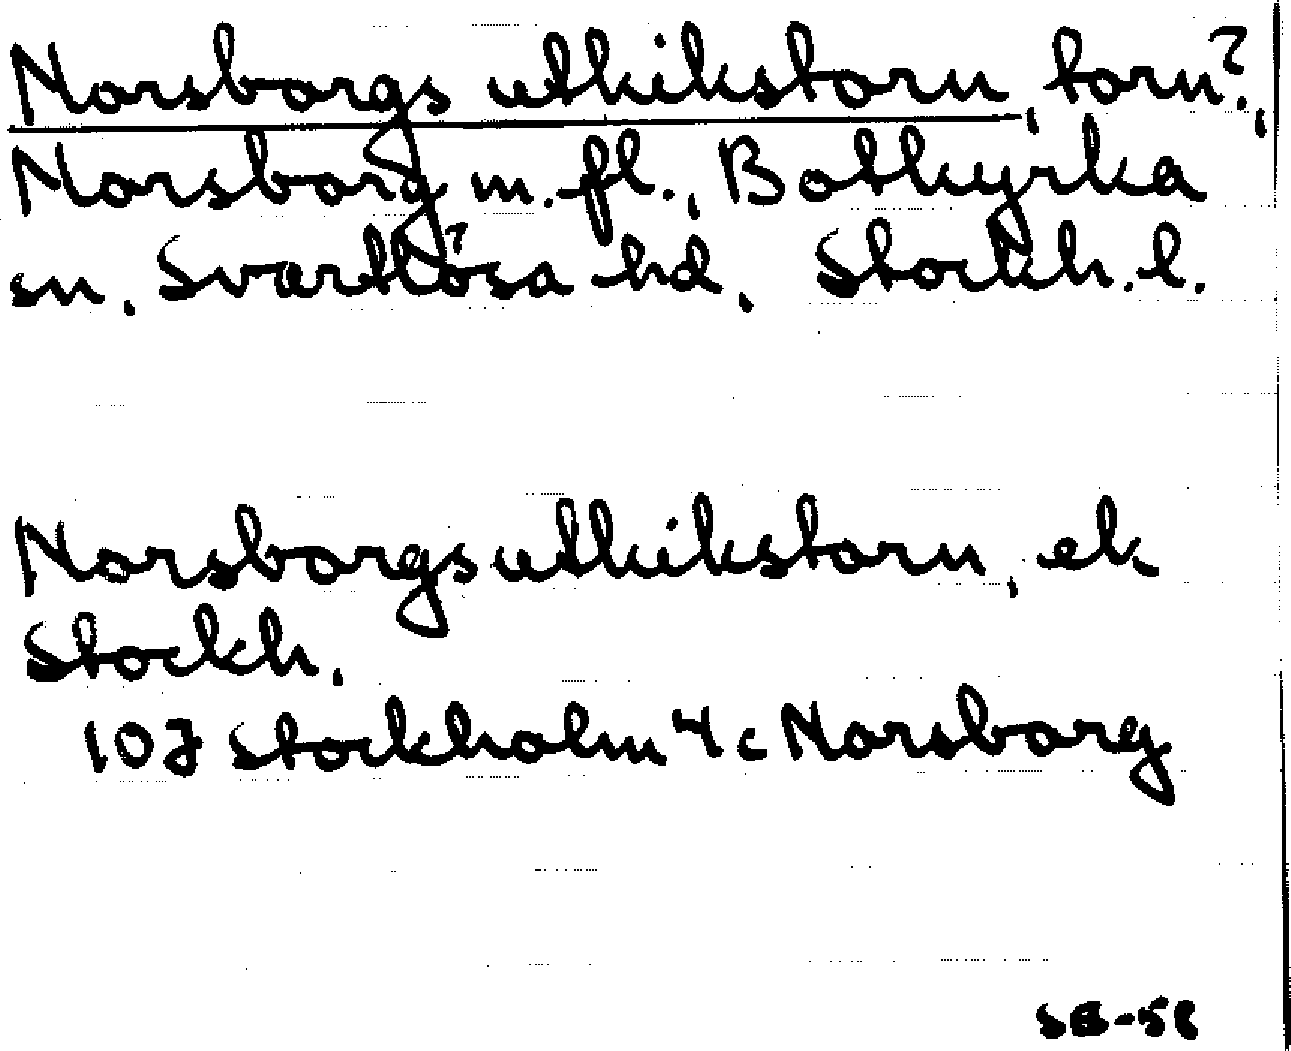 Norsborgs utkikstorn, torn?,
Norsborg m.fl., Botkyrka
sn, Svartlösa hd, Stockh. l.
Norsborgs utkikstorn, ek
Stockh.
10J Stockholm 4c Norsborg
SB-58